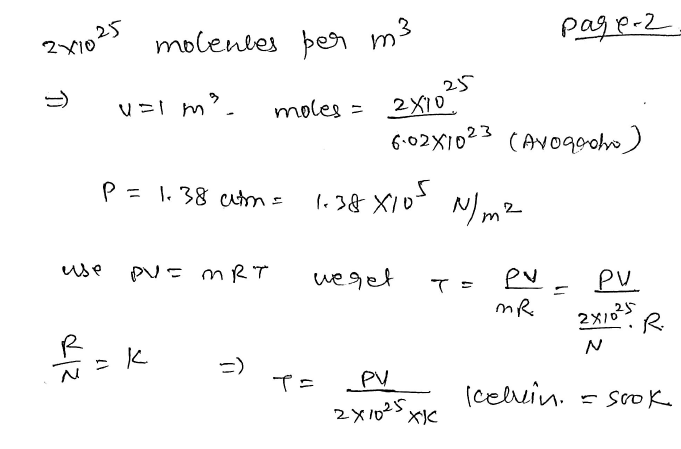 page-2
2×10²⁵ molecules per m³
⇒ V=1 m³. moles = 2×10²⁵ / 6.02×10²³ (Avogadro)
P = 1.38 atm = 1.38 ×10⁵ N/m²
use PV = nRT we get T = PV / nR = PV / (2×10²⁵ / N . R)
R / N = K ⇒ T = PV / 2×10²⁵ ×K Kelvin. = 500 K